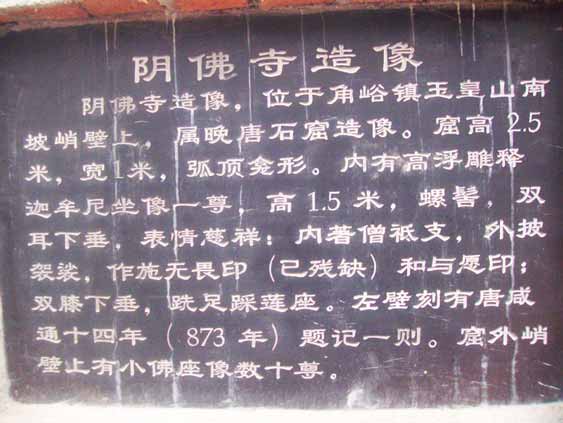 阴佛寺造像
阴佛寺造像，位于角峪镇玉皇山南
坡峭壁上，属晚唐石窟造像。窟高2.5
米，宽1米，弧顶龛形。内有高浮雕释
迦牟尼坐像一尊，高1.5米，螺髻，双
耳下垂，表情慈祥；内著僧祗支，外披
袈裟，作施无畏印（已残缺）和与愿印；
双膝下垂，跣足踩莲座。左壁刻有唐咸
通十四年（873年）题记一则。窟外峭
壁上有小佛座像数十尊。